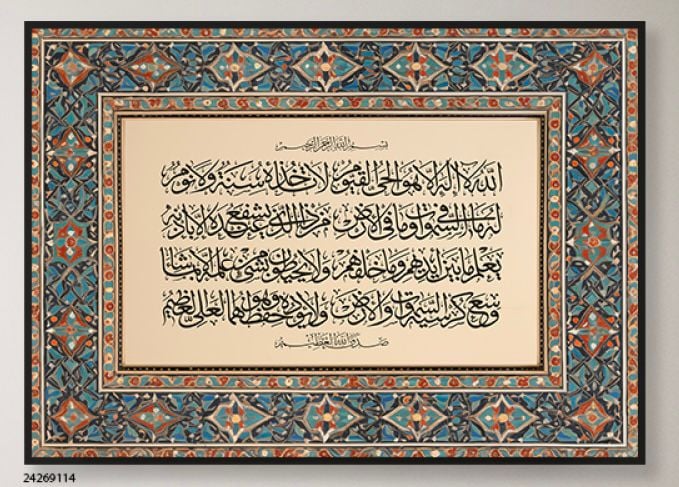 بسم الله الرحمن الرحيم
الله لا اله الا هو الحي القيوم لا تاخذه سنة ولا نوم
له ما في السموات وما في الارض من ذا الذي يشفع عنده الا باذنه
يعلم ما بين ايديهم وما خلفهم ولا يحيطون بشئ من علمه الا بما شا
وسع كرسيه السموات والارض ولا يؤده حفظهما وهو العلي العظيم
صدق الله العظيم
24269114